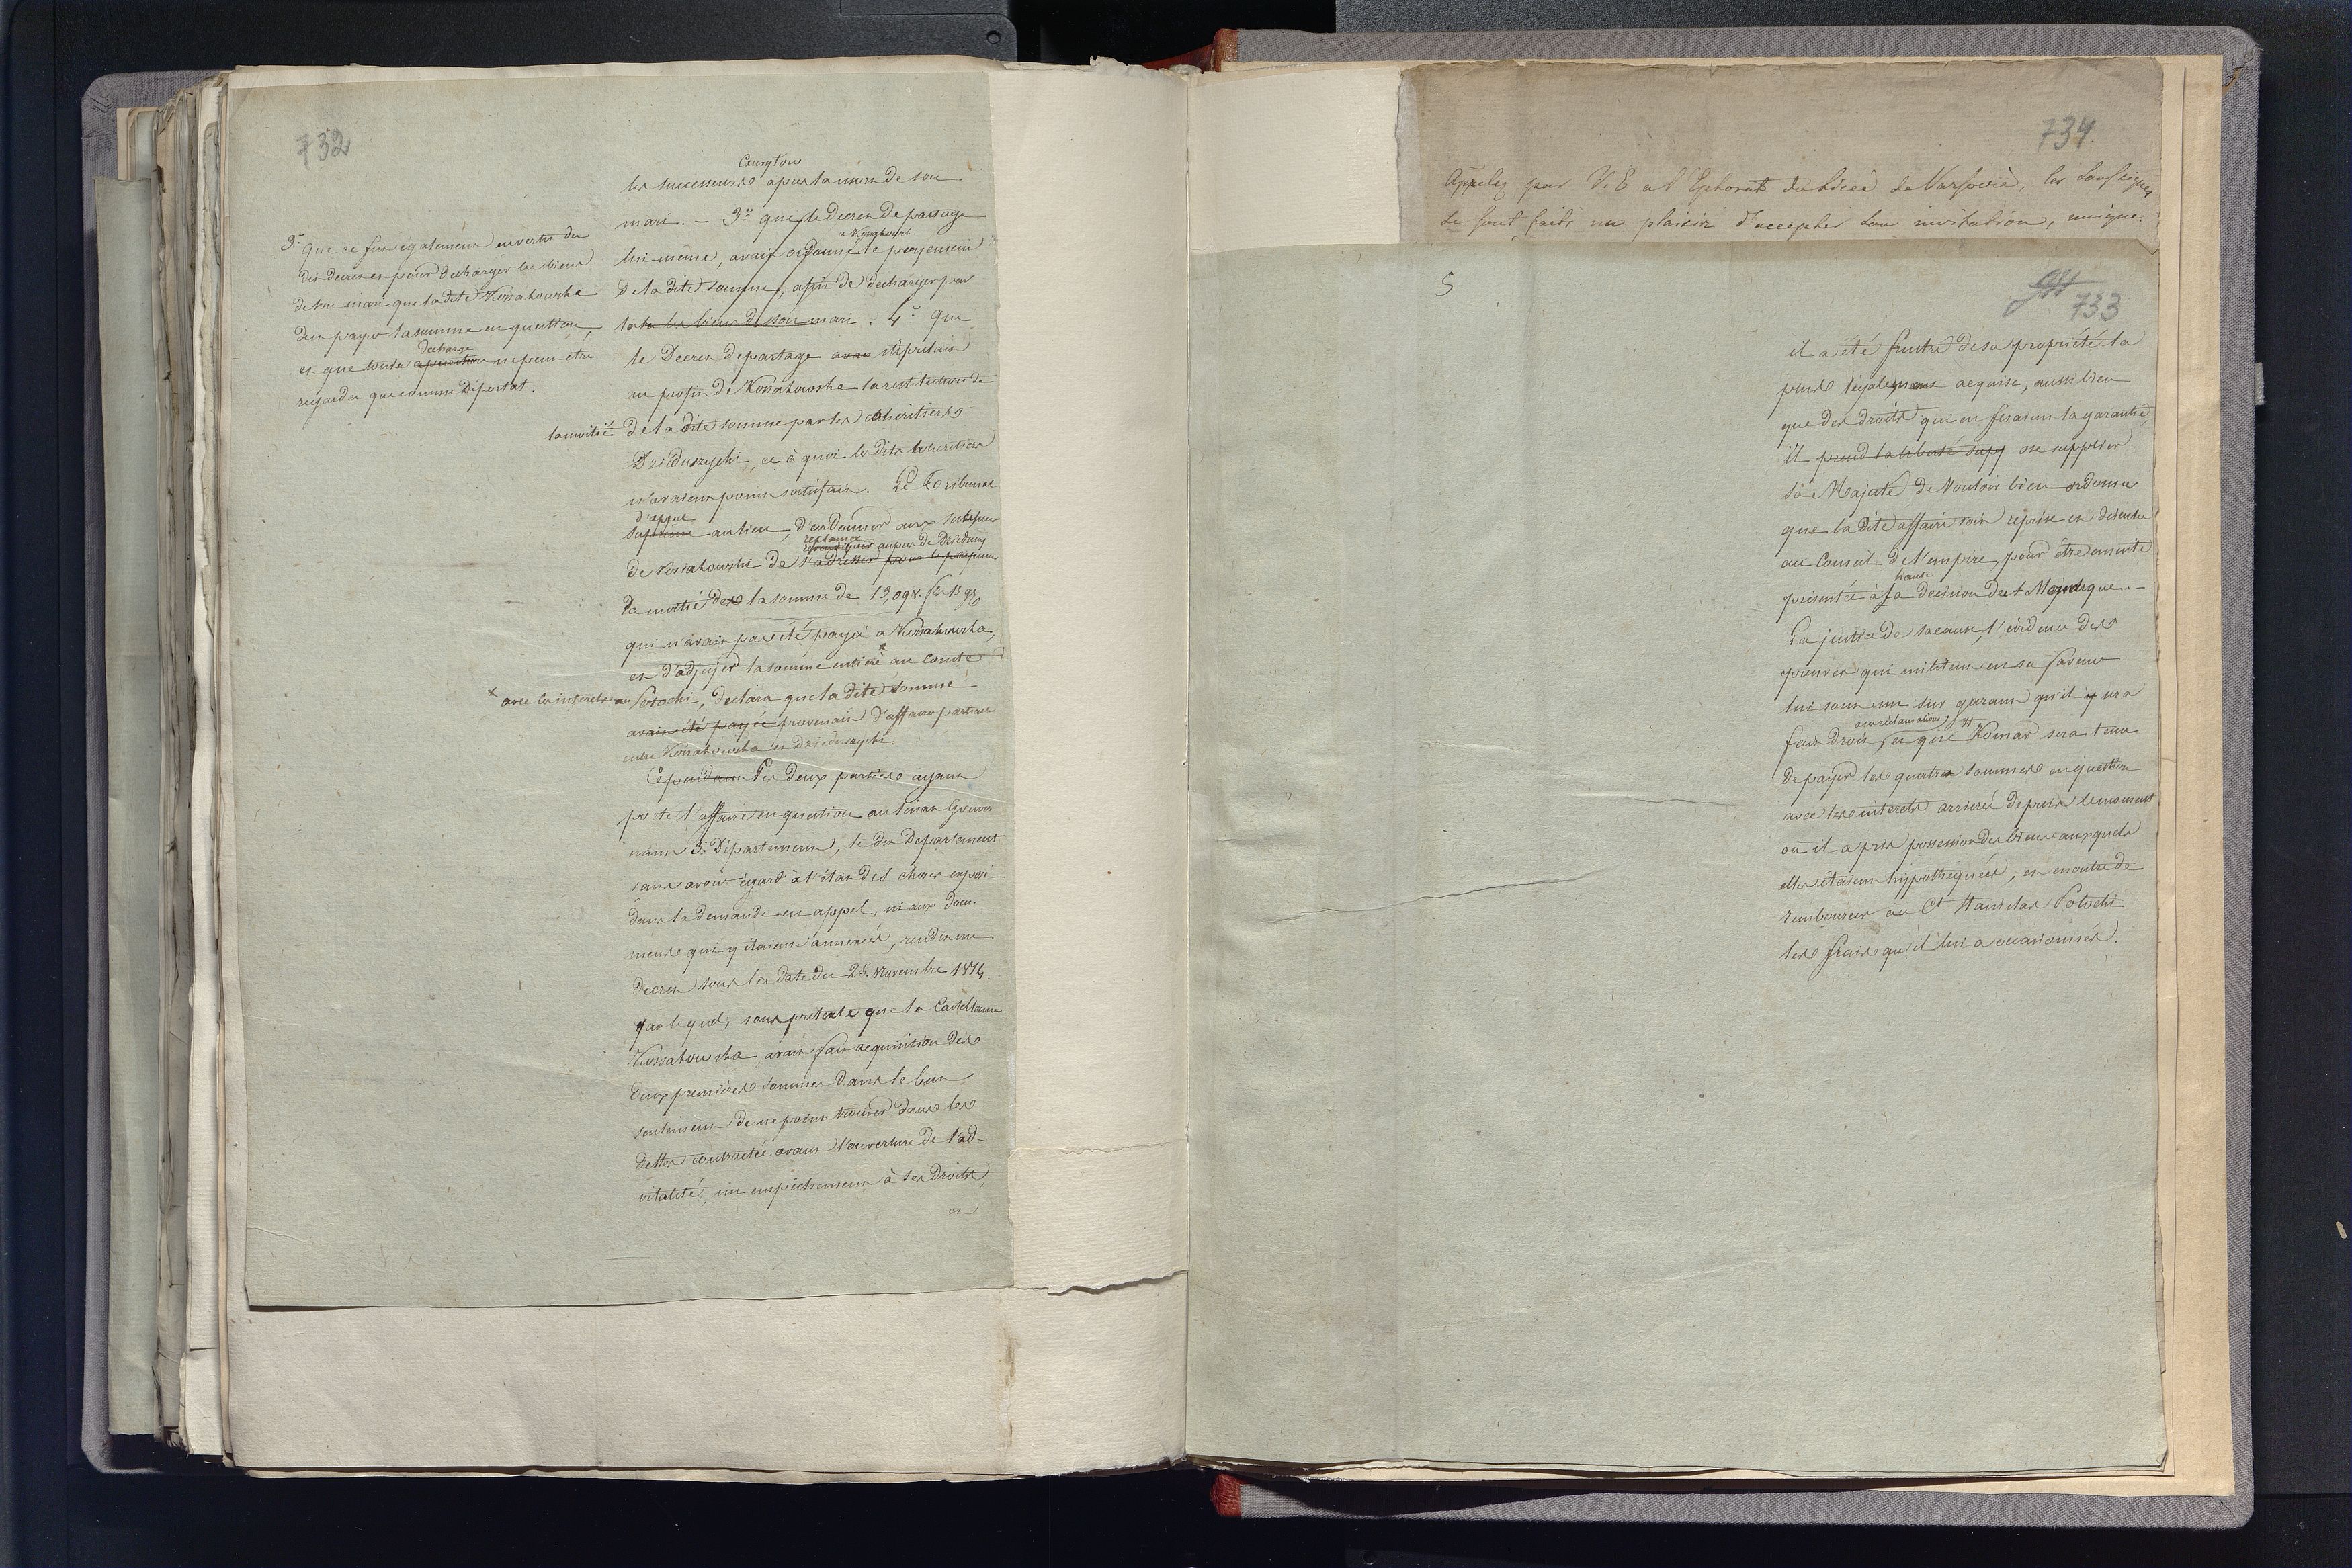 732
3.° Que ce fut également en vertu du
dit Decret et pour decharger les biens
de son mari que la dite Kossakowska
dut payer la somme en question,
decharge
et que toute ne peut être
regardée que comme
les successeurs après la mort de son
mari. — 3.° que le decret de partage
a Kossakowska
lui même, avait ordonné le payement
de la dite somme, afin de decharger par
là les biens de son mari. 4.° Que
le Decret de partage avait stipulait
au profit de Kossakowska la restitution de
la moitié de la dite somme par les coheritiers
Dzieduszycki, ce à quoi les dits heritiers
n'avaient point satisfait. Le Tribunal
d'appel
suprême au lieu, d'ordonner aux successeurs
reclamer
auprès de
de Kossakowski de s'adresser pour le payement
la moitié de la somme de 13,098. fl. 13 g
qui n'avait pas été payé a Kossakowska,
et d'adjuger la somme entière × au Comte
× avec les interets
Potocki, declara que la dite somme
avait été payée provenait d'affaire
entre Kossakowska et Dzieduszycki.
Cependant Les deux parties ayant
porté l'affaire en question au Senat Gouver
nant 3.° Departement, le dit Departement
sans avoir égard à l'état des choses exposé
dans la demande en appel, ni aux docu-
ments qui y étaient annexés, rendit un
decret sous la date du 25. Novembre 1814.
par lequel, sous pretexte que la Castellane
Kossakowska avait fait acquisition des
deux premières sommes dans le but
seulement de ne point trouver dans les
dettes contractées avant l'ouverture de l'ad-
vitalité, un empêchement à ses droits,
et
734
Appelés par V. E a l'Ephorat du Liceé de Varsovie, les soussignés
se sont faits un plaisir d'accepter son invitation, unique-
5
733
il a été frustré de sa propriété la
plus légalement acquise, aussi bien
que des droits qui en faisaient la garantie,
il prend la liberté supp ose supplier
sa Majesté de Vouloir bien ordonner
que la dite affaire soit reprise et discutée
au Conseil de l'empire, pour être ensuite
haute
présentée à la decision du Monarque. —
La justice de sa cause, l'évidence des
preuves qui militent en sa faveur
lui sont un sur garant qu'il y sera
a ses réclamations,
fait droit, et que Komar sera tenu
de payer les quatres sommes en question
avec les interets arrierés depuis le moment
où il a pris possession des biens auxquels
elles étaient hypothequées, et en outre de
rembourser au Ct Stanislas Potocki
les frais qu'il lui a occasionnés.